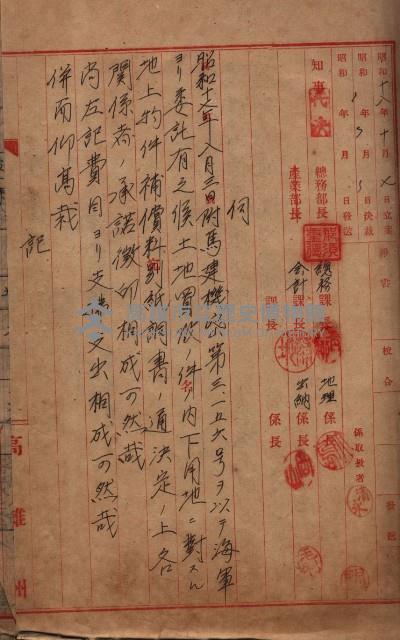 昭和十八年十月 日立案
昭和 年 月 日決裁
昭和 年 月 日發送
知事
總務部長
產業部長
總務課長
會計課長
課長
地理係長
出納係長
係長
係取扱者
校合
伺
昭和十七年八月三日附馬建機密第三一五六号ヲ以テ海軍
ヨリ委託有之候土地買收ノ件ノ内下用地ニ對スル
地上物件補償料別紙調書ノ通決定ノ上各
關係者ノ承諾徵印相成可然哉
尚左記費目ヨリ支拂支出相成可然哉
併而仰高裁
記
高雄州